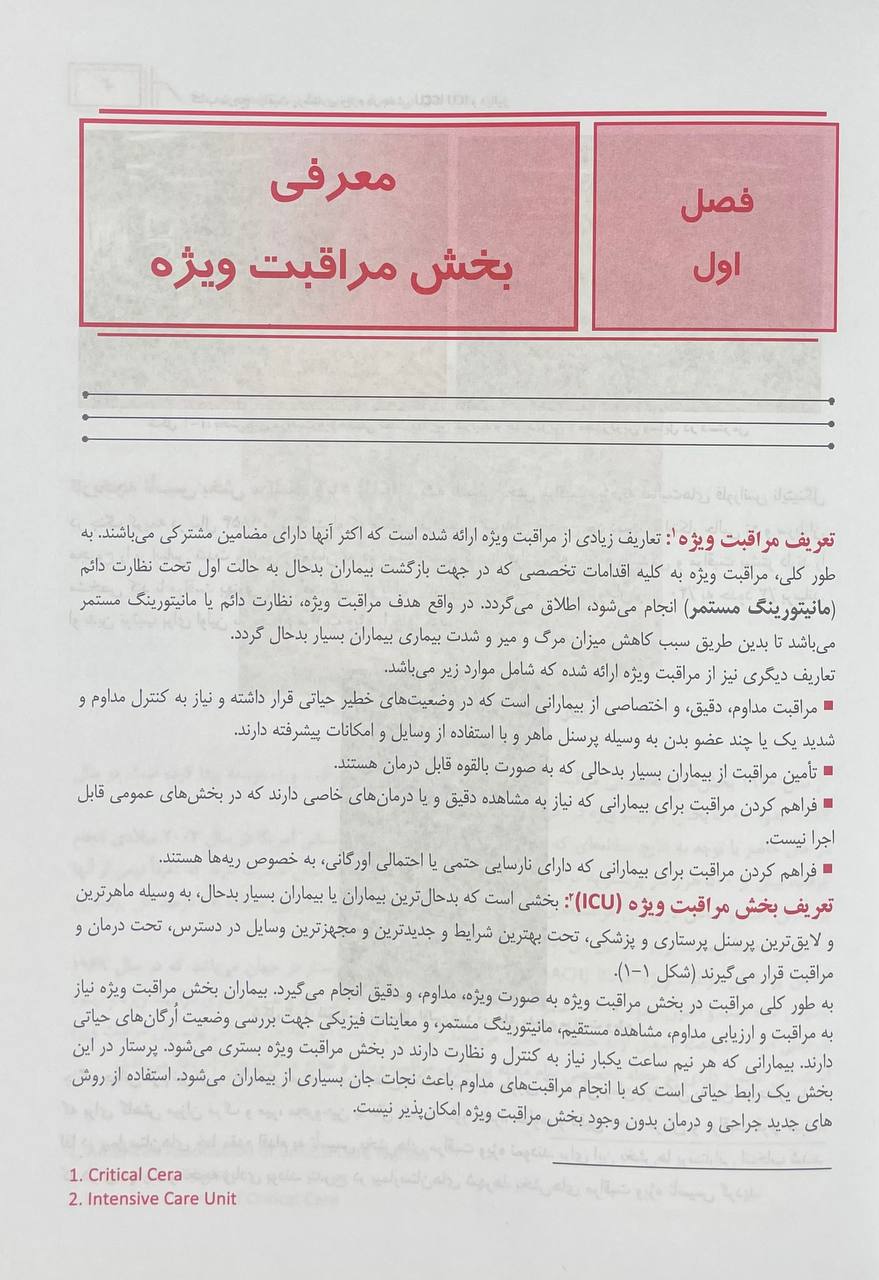 فصل
اول
معرفی
بخش مراقبت ویژه
تعریف مراقبت ویژه۱: تعاریف زیادی از مراقبت ویژه ارائه شده است که اکثر آنها دارای مضامین مشترکی می‌باشند. به
طور کلی، مراقبت ویژه به کلیه اقدامات تخصصی که در جهت بازگشت بیماران بدحال به حالت اول تحت نظارت دائم
(مانیتورینگ مستمر) انجام می‌شود، اطلاق می‌گردد. در واقع هدف مراقبت ویژه، نظارت دائم یا مانیتورینگ مستمر
می‌باشد تا بدین طریق سبب کاهش میزان مرگ و میر و شدت بیماری بیماران بسیار بدحال گردد.
تعاریف دیگری نیز از مراقبت ویژه ارائه شده که شامل موارد زیر می‌باشد.
■ مراقبت مداوم، دقیق، و اختصاصی از بیمارانی است که در وضعیت‌های خطیر حیاتی قرار داشته و نیاز به کنترل مداوم و
شدید یک یا چند عضو بدن به وسیله پرسنل ماهر و با استفاده از وسایل و امکانات پیشرفته دارند.
■ تأمین مراقبت از بیماران بسیار بدحالی که به صورت بالقوه قابل درمان هستند.
■ فراهم کردن مراقبت برای بیمارانی که نیاز به مشاهده دقیق و یا درمان‌های خاصی دارند که در بخش‌های عمومی قابل
اجرا نیست.
■ فراهم کردن مراقبت برای بیمارانی که دارای نارسایی حتمی یا احتمالی اورگانی، به خصوص ریه‌ها هستند.
تعریف بخش مراقبت ویژه (ICU)۲: بخشی است که بدحال‌ترین بیماران یا بیماران بسیار بدحال، به وسیله ماهرترین
و لایق‌ترین پرسنل پرستاری و پزشکی، تحت بهترین شرایط و جدیدترین و مجهزترین وسایل در دسترس، تحت درمان و
مراقبت قرار می‌گیرند (شکل ۱-۱).
به طور کلی مراقبت در بخش مراقبت ویژه به صورت ویژه، مداوم، و دقیق انجام می‌گیرد. بیماران بخش مراقبت ویژه نیاز
به مراقبت و ارزیابی مداوم، مشاهده مستقیم، مانیتورینگ مستمر، و معاینات فیزیکی جهت بررسی وضعیت اُرگان‌های حیاتی
دارند. بیمارانی که هر نیم ساعت یکبار نیاز به کنترل و نظارت دارند در بخش مراقبت ویژه بستری می‌شود. پرستار در این
بخش یک رابط حیاتی است که با انجام مراقبت‌های مداوم باعث نجات جان بسیاری از بیماران می‌شود. استفاده از روش
های جدید جراحی و درمان بدون وجود بخش مراقبت ویژه امکان‌پذیر نیست.
1. Critical Cera
2. Intensive Care Unit